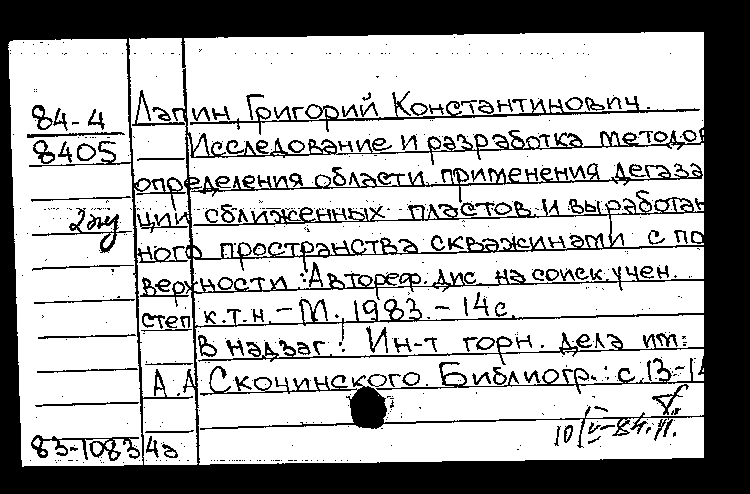 84-4
8405
2 экз
Лапин, Григорий Константинович.
Исследование и разработка методов
определения области применения дегаза
ции сближенных пластов и выработан
ного пространства скважинами с по
верхности : Автореф. дис. на соиск. учен.
степ к.т.н. - М., 1983. - 14 с.
В надзаг.: Ин-т горн. дела им.
А.А Скочинского. Библиогр.: с. 13-14
83-10834а